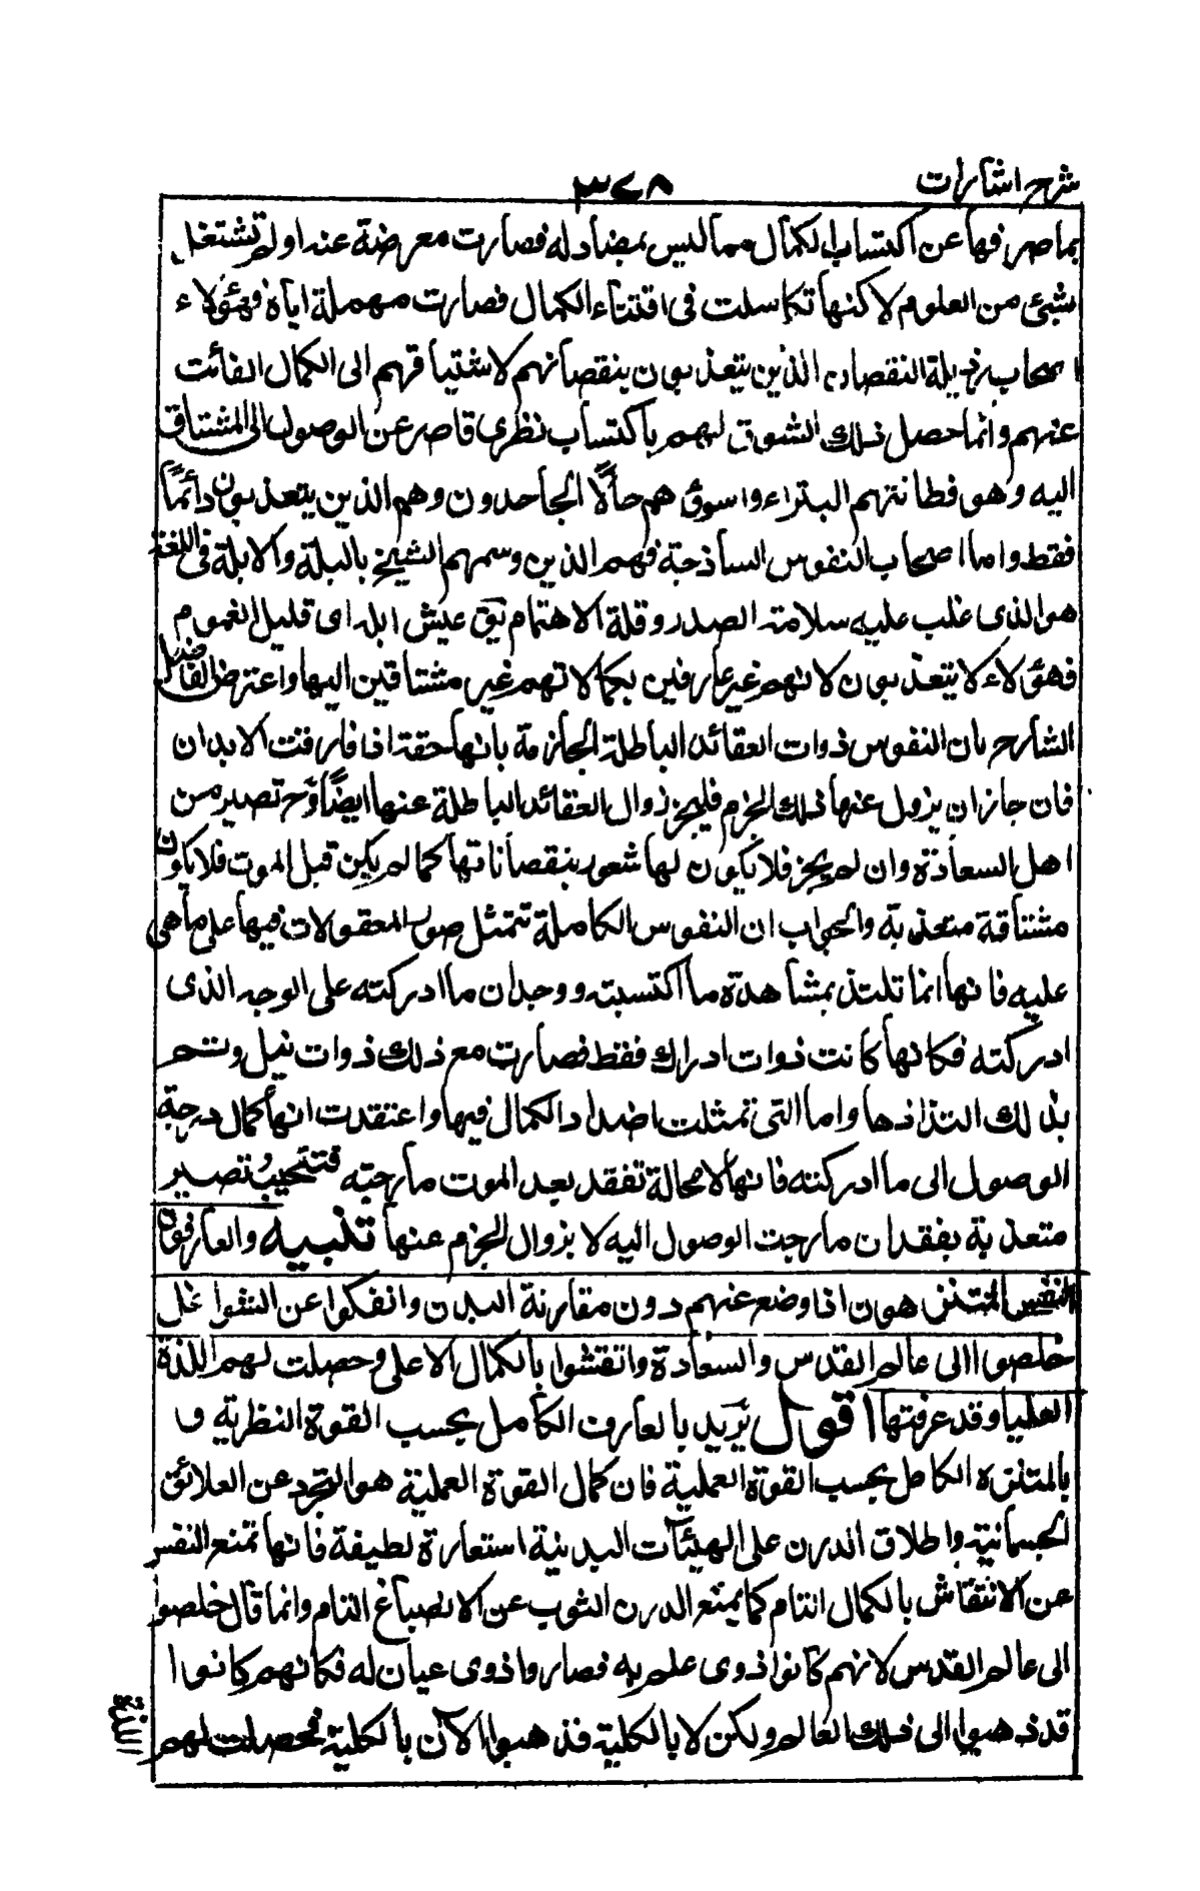 شرح اشارات ٣٧٨
بما صرفها عن اكتساب الكمال مما ليس بمضاد له فصارت معرضة عنه او لم تشتغل
بشئ من العلوم لاكنها تكاسلت فى اقتناء الكمال فصارت مهملة اياه فهؤلاء
اصحاب رذيلة النقصان الذين يتعذبون بنقصانهم لاشتياقهم الى الكمال الفائت
عنهم وانما حصل ذلك الشوق لهم باكتساب نظرى قاصر عن الوصول الى المشتاق
اليه وهو فطانتهم البتراء واسوئهم حالًا الجاحدون وهم الذين يتعذبون دائمًا
فقط واما اصحاب النفوس الساذجة فهم الذين وسمهم الشيخ بالبلة والابلة فى اللغة
هو الذى غلب عليه سلامته الصدر وقلة الاهتمام يق عيش ابله اى قليل الغموم
فهؤلاء لا يتعذبون لانهم غير عارفين بكمالاتهم غير مشتاقين اليها واعترض الفاضل
الشارح بان النفوس ذوات العقائد الباطلة الجازمة بانها حقة اذا فارقت الابدان
فان جاز ان يزول عنها ذلك الجزم فليجز زوال العقائد الباطلة عنها ايضًا وح تصير من
اهل السعادة وان لم يجز فلا تكون لها شعور بنقصاناتها كما لم يكن قبل الموت فلا يكون
مشتاقة متعذبة والجواب ان النفوس الكاملة تتمثل صور المعقولات فيها على ما هى
عليه فانها انما تلتذ بمشاهدة ما اكتسبته ووجدان ما ادركته على الوجه الذى
ادركته فكانها كانت ذوات ادراك فقط فصارت مع ذلك ذوات نيل وتتم
بذلك التذاذها واما التى تمثلت اضداد الكمال فيها واعتقدت انها كمال درجة
الوصول الى ما ادركته فانها لا محالة تفقد بعد الموت ما رجته فتخيب تصير
متعذبة بفقدان ما رجت الوصول اليه لا بزوال الجزم عنها تنبيه والعارفون
المتنزهون اذا وضع عنهم دون مقارنة البدن وانفكوا عن الشواغل
خلصوا الى عالم القدس والسعادة وانتقشوا بالكمال الاعلى وحصلت لهم اللذة
العليا وقد عرفتها اقول يريد بالعارف الكامل بحسب القوة النظرية و
بالمتنزه الكامل بحسب القوة العملية فان كمال القوة العملية هو التجرد عن العلائق
الجسمانية واطلاق الدرن على الهيئات البدنية استعارة لطيفة فانها تمنع النفس
عن الانتقاش بالكمال التام كما يمنع الدرن الثوب عن الانصباغ التام وانما قال خلصوا
الى عالم القدس لانهم كانوا ذوى علم به فصاروا ذوى عيان له فكانهم كانوا
قد ذهبوا الى ذلك العالم ولكن لا بالكلية فذهبوا الآن بالكلية فحصلت لهم